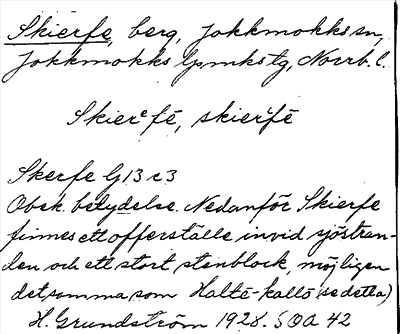 Skierfe, berg, Jokkmokks sn,
Jokkmokks lpmkstg, Norrb. l.
Skierᵉfē, skierᵉfē
Skerfe G13 c3
Obek. betydelse. Nedanför Skierfe
finnes ett offerställe invid sjöstran-
den och ett stort stenblock, möjligen
detsamma som Haltē-kallō (se detta)
H. Grundström 1928. SOA 42